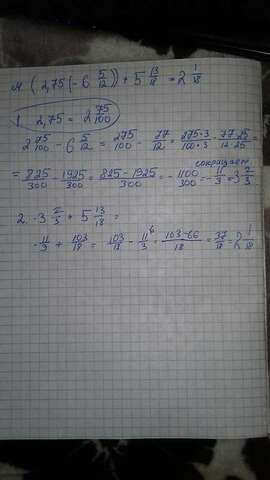 м. (2,75 (- 6 5/12)) + 5 13/18 = 2 1/18
1. 2,75 = 2 75/100
2 75/100 - 6 5/12 = 275/100 - 77/12 = 275·3/100·3 - 77·25/12·25 =
сокращаем
= 825/300 - 1925/300 = 825 - 1925/300 = - 1100/300 = - 11/3 = 3 2/3
2. -3 2/3 + 5 13/18 =
- 11/3 + 103/18 = 103/18 - 11/3 6 = 103-66/18 = 37/18 = 2 1/18